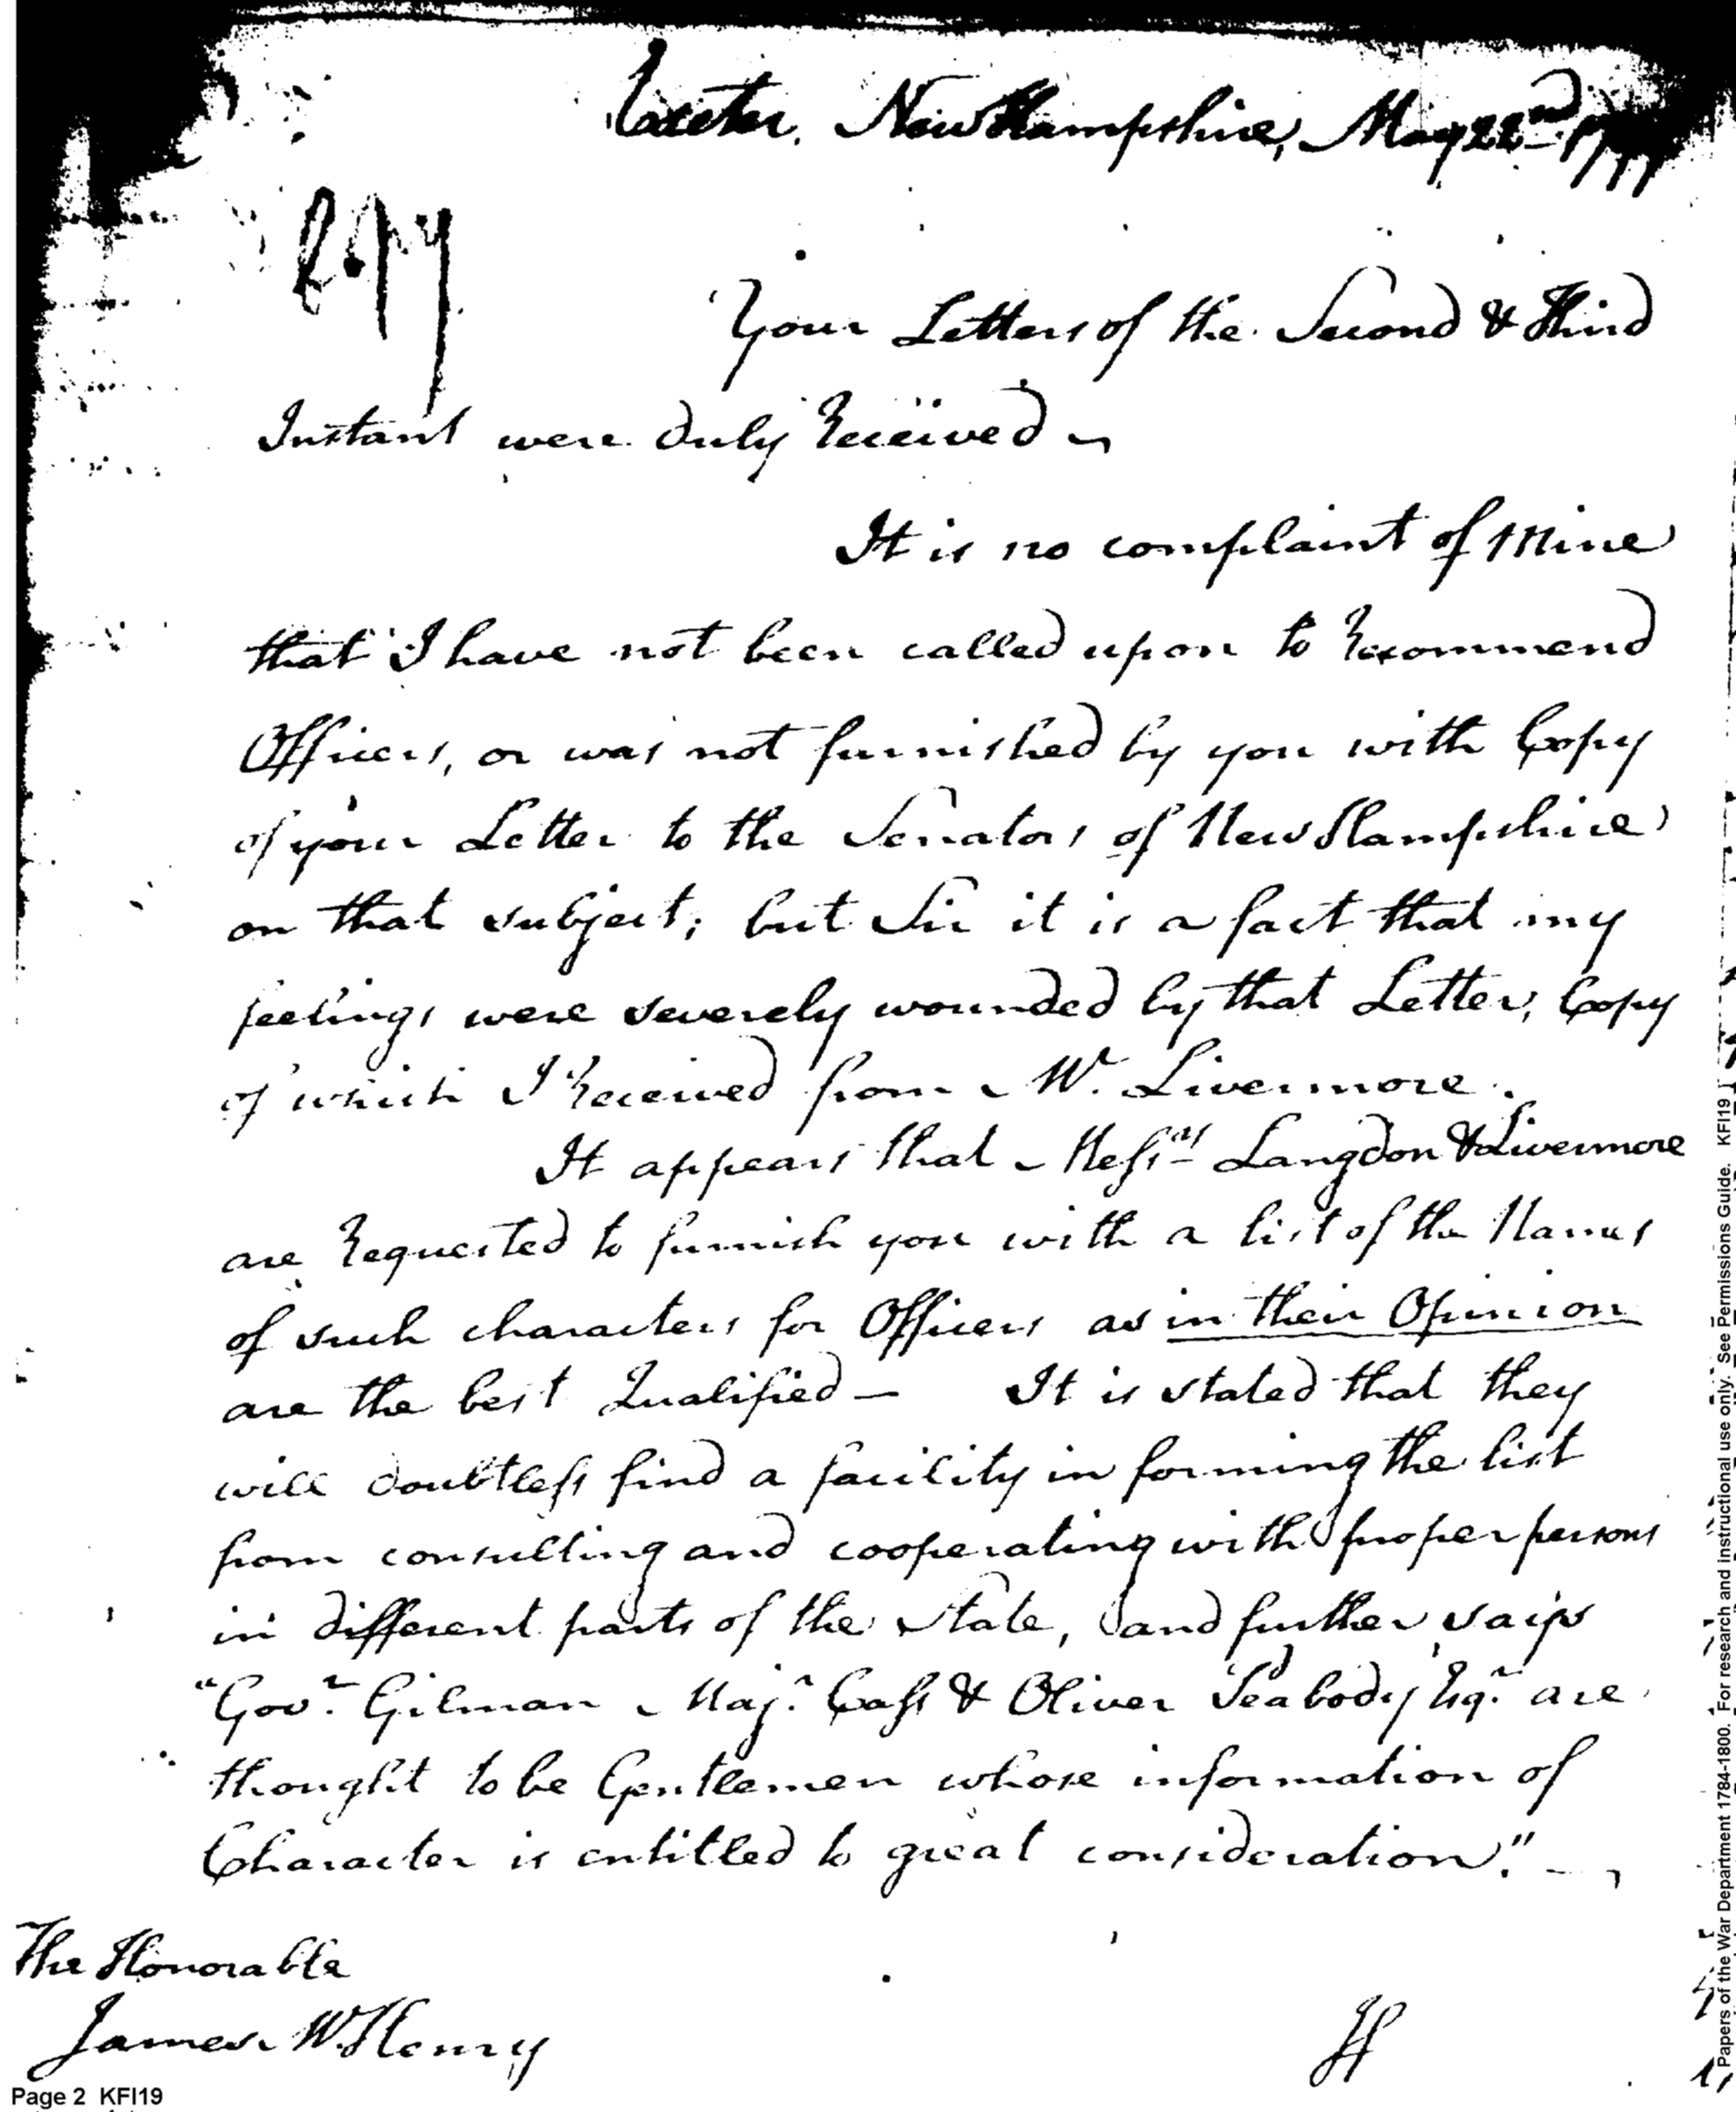 Exeter, New Hampshire, May 22nd 1799
Copy
Your Letters of the Second & Third
Instant were duly Received
It is no complaint of Mine
that I have not been called upon to Recommend
Officers, or was not furnished by you with Copy
of your Letter to the Senators of New Hampshire
on that subject; but Sir it is a fact that my
feelings were severely wounded by that Letter, Copy
of which I Received from Mr. Livermore.
It appears that Messrs Langdon & Livermore
are Requested to furnish you with a list of the Names
of such characters for Officers as in their Opinion
are the best Qualified — It is stated that they
will doubtless find a facility in forming the list
from consulting and cooperating with proper persons
in different parts of the State, and further says
"Govr. Gilman Majr. Cass & Oliver Peabody Esqr. are
thought to be Gentlemen whose information of
Character is entitled to great consideration." —
The Honorable
James McHenry
If
Page 2 KFI19
Papers of the War Department 1784-1800. For research and instructional use only. See Permissions Guide. KFI19